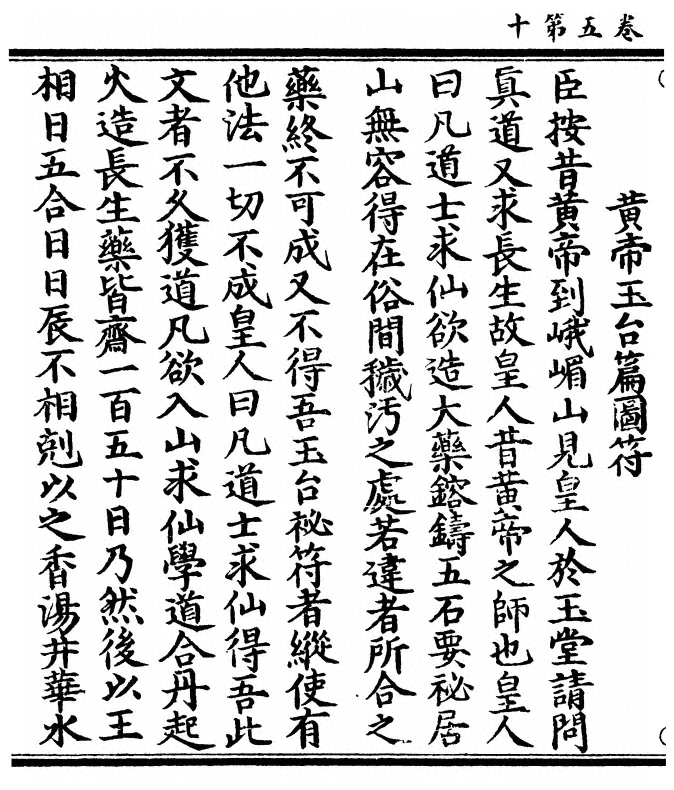 卷五第十
黃帝玉台篇圖符
臣按昔黃帝到峨嵋山見皇人於玉堂請問
眞道又求長生故皇人昔黃帝之師也皇人
曰凡道士求仙欲造大藥鎔鑄五石要祕居
山無容得在俗間穢汚之處若違者所合之
藥終不可成又不得吾玉台祕符者縱使有
他法一切不成皇人曰凡道士求仙得吾此
文者不久獲道凡欲入山求仙學道合丹起
火造長生藥皆齋一百五十日乃然後以王
相日五合日日辰不相剋以之香湯井華水